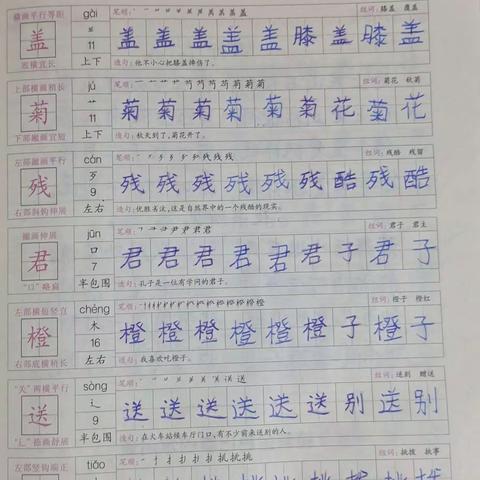 横画平行等距 gài 笔顺： 组词：膝盖 覆盖
盖 11 盖 盖 盖 盖 盖 膝 盖 膝 盖
底横宜长 上下 造句：他不小心把膝盖摔伤了。
上部横画稍长 jú 笔顺： 组词：菊花 秋菊
菊 艹 11 菊 菊 菊 菊 菊 菊 花 菊 花
下部撇画宜短 上下 造句：秋天到了，菊花开了。
左部撇画平行 cán 笔顺： 组词：残酷 残留
残 歹 9 残 残 残 残 残 残 酷 残 酷
右部斜钩伸展 左右 造句：优胜劣汰，这是自然界中的一个残酷的现实。
撇画伸展 jūn 笔顺： 组词：君子 君主
君 口 7 君 君 君 君 君 君 子 君 子
"口"略扁 半包围 造句：孔子是一位有学问的君子。
左部横短竖直 chéng 笔顺： 组词：橙子 橙红
橙 木 16 橙 橙 橙 橙 橙 橙 子 橙 子
右部底横稍长 左右 造句：我喜欢吃橙子。
"关"两横平行 sòng 笔顺： 组词：送别 赠送
送 辶 9 送 送 送 送 送 送 别 送 别
"辶"捺画舒展 半包围 造句：在火车站候车厅门口，有不少前来送别的人。
左部竖钩端正 tiǎo 笔顺： 组词：挑拨 挑事